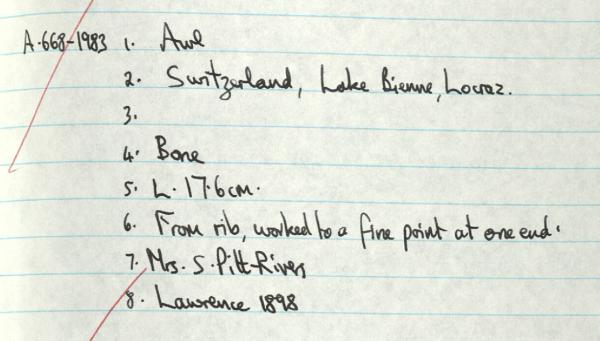 A.668-1983 1. Awl
2. Switzerland, Lake Bienne, Locraz.
3.
4. Bone
5. L. 17.6cm.
6. From rib, worked to a fine point at one end.
7. Mrs. S. Pitt-Rivers
8. Lawrence 1898